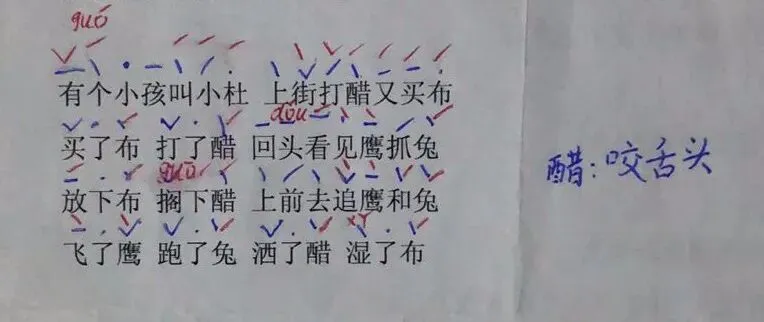 guó
有个小孩叫小杜 上街打醋又买布
dōu
买了布 打了醋 回头看见鹰抓兔 醋：咬舌头
guō
放下布 搁下醋 上前去追鹰和兔
飞了鹰 跑了兔 洒了醋 湿了布